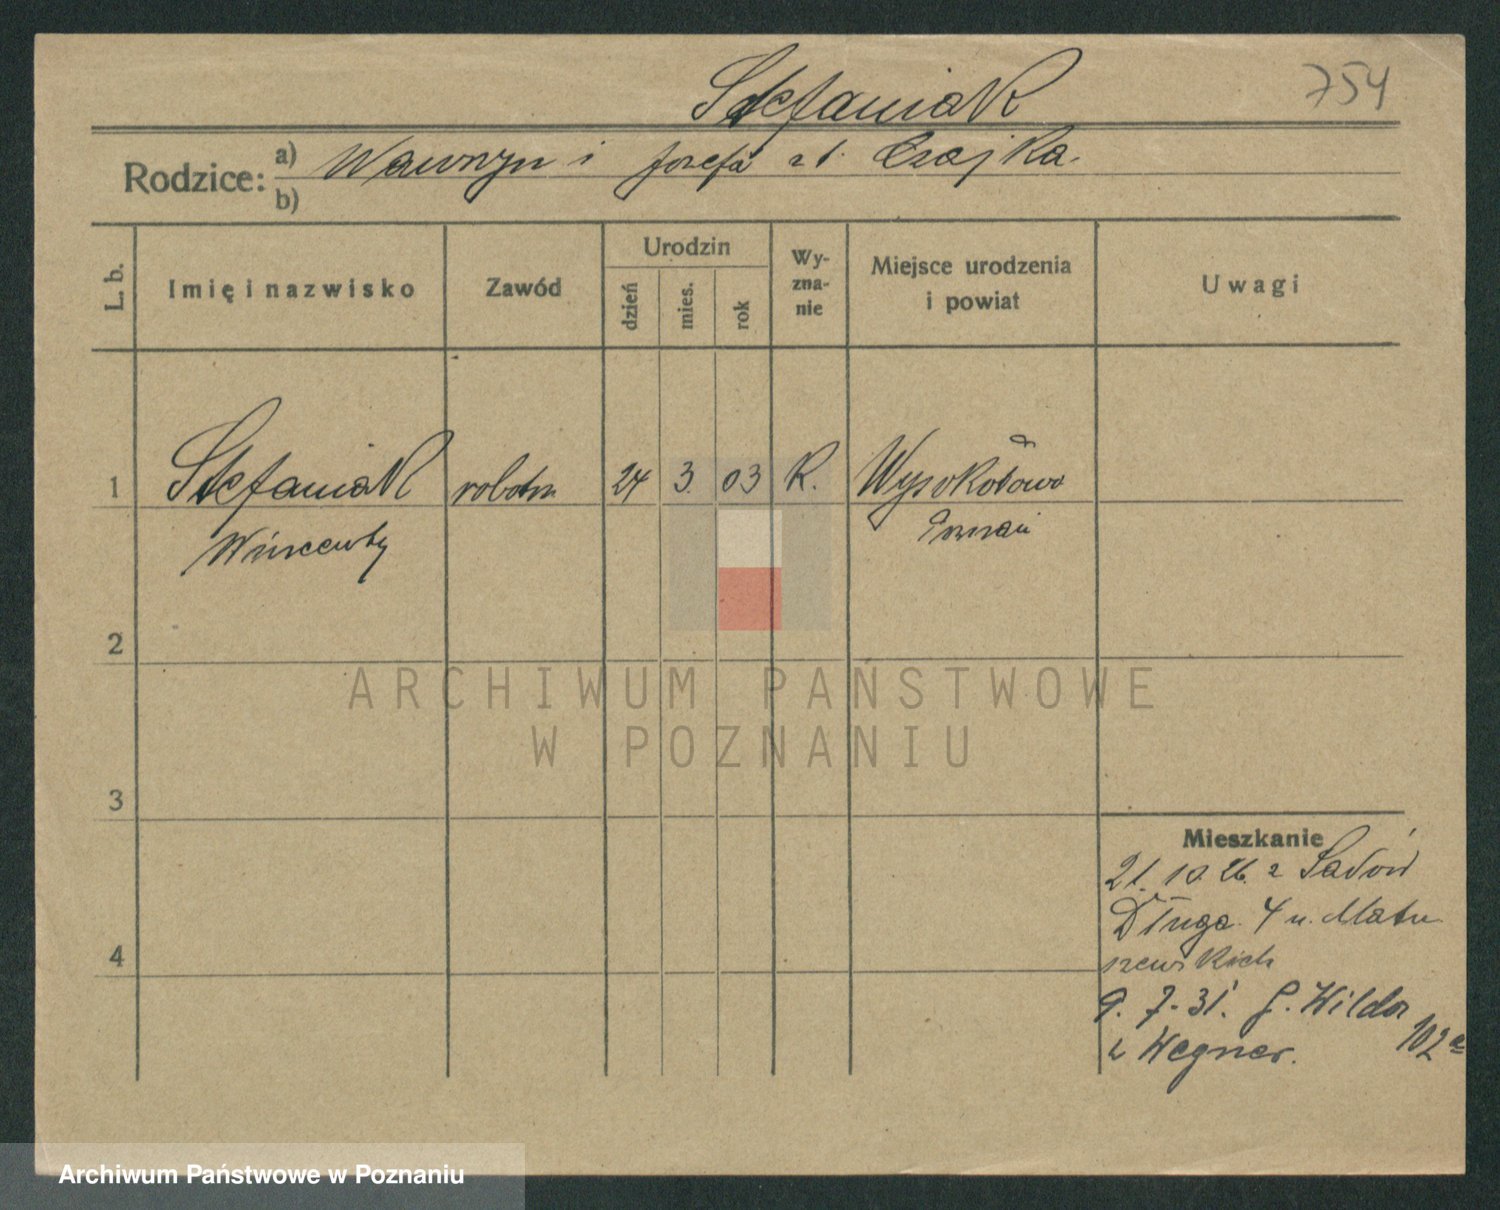 Stefaniak
754
Rodzice: a) Wawrzyn i Józefa z d. Czajka.
b)
L. b.
Imię i nazwisko
Zawód
Urodzin
dzień
mies.
rok
Wy-
zna-
nie
Miejsce urodzenia
i powiat
Uwagi
1 Stefaniak robotn. 24 3. 03 K. Wysokotowo
Wincenty Poznań
2
3
4
ARCHIWUM PAŃSTWOWE
W POZNANIU
Mieszkanie
21.10.26. z
Długa. 4 u. Matu
szewskich
9. 7. 31. G. Wilda 102a
u Wegner.
Archiwum Państwowe w Poznaniu